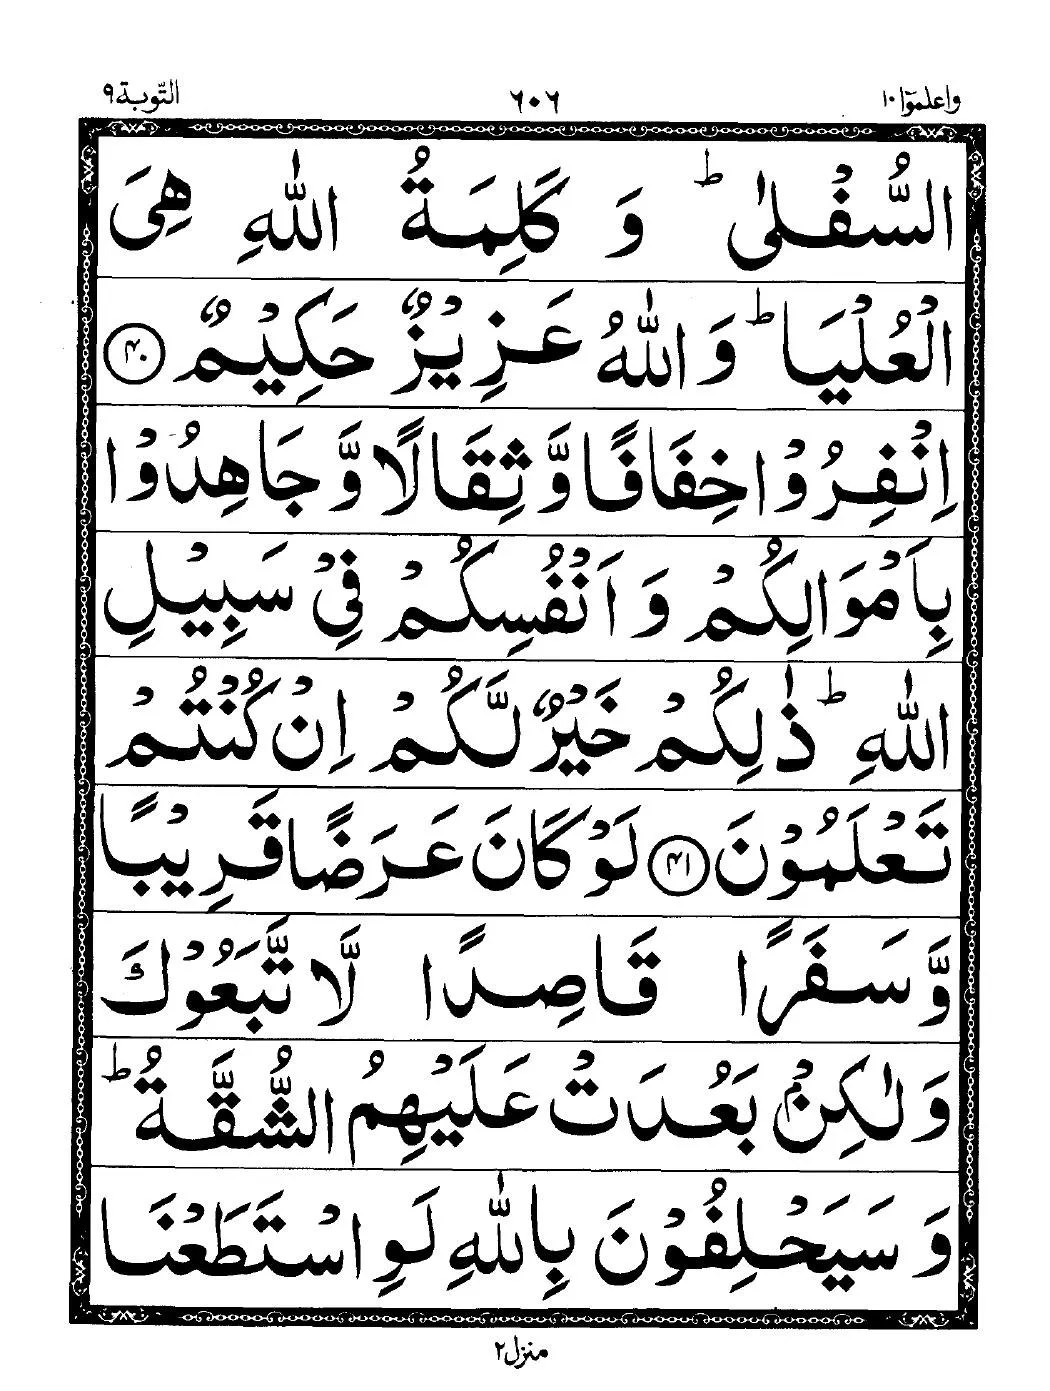 واعلموٓا ١٠ ٦٠٦ التّوبة ٩
السُّفْلٰى ؕ وَ كَلِمَةُ اللّٰهِ هِیَ
الْعُلْیَا ؕ وَ اللّٰهُ عَزِیْزٌ حَكِیْمٌ ﴿۴۰﴾
اِنْفِرُوْا خِفَافًا وَّ ثِقَالًا وَّ جَاهِدُوْا
بِاَمْوَالِكُمْ وَ اَنْفُسِكُمْ فِیْ سَبِیْلِ
اللّٰهِ ؕ ذٰلِكُمْ خَیْرٌ لَّكُمْ اِنْ كُنْتُمْ
تَعْلَمُوْنَ ﴿۴۱﴾ لَوْ كَانَ عَرَضًا قَرِیْبًا
وَّ سَفَرًا قَاصِدًا لَّا تَّبَعُوْكَ
وَ لٰكِنْۢ بَعُدَتْ عَلَیْهِمُ الشُّقَّةُ ؕ
وَ سَیَحْلِفُوْنَ بِاللّٰهِ لَوِ اسْتَطَعْنَا
منزل ۲